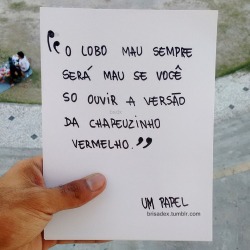 “O LOBO MAU SEMPRE
SERÁ MAU SE VOCÊ
SO OUVIR A VERSÃO
DA CHAPEUZINHO
VERMELHO.”
UM PAPEL
brisadex.tumblr.com